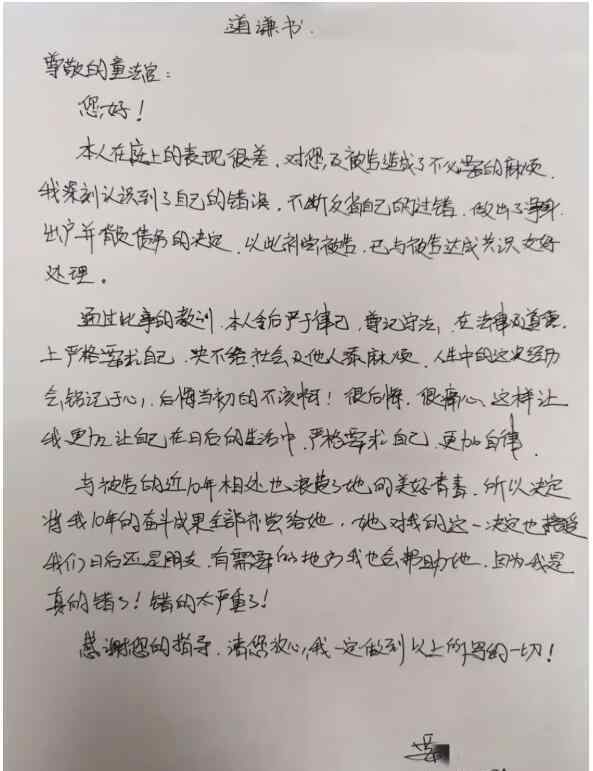 道谦书.
尊敬的童法官:
您好!
本人在庭上的表现很差,对您及被告造成了不必要的麻烦.
我深刻认识到了自己的错误,不断反省自己的过错,做出了净身
出户并背负债务的决定,以此补偿被告,已与被告达成共识友好
处理。
通过此事的教训,本人今后严于律己,尊记守法,在法律及道德
上严格要求自己,决不给社会及他人添麻烦,人生中的这次经历
会铭记于心,后悔当初的不该啊!很后悔,很痛心,这样让
我更加让自己在日后的生活中,严格要求自己,更加自律.
与被告的近10年相处也浪费了她的美好青春,所以决定
将我10年的奋斗成果全部补偿给她,她对我的这一决定也接受
我们日后还是朋友,有需要的地方我也会帮助她,因为我是
真的错了!错的太严重了!
感谢您的指导,请您放心,我一定做到以上所写的一切!